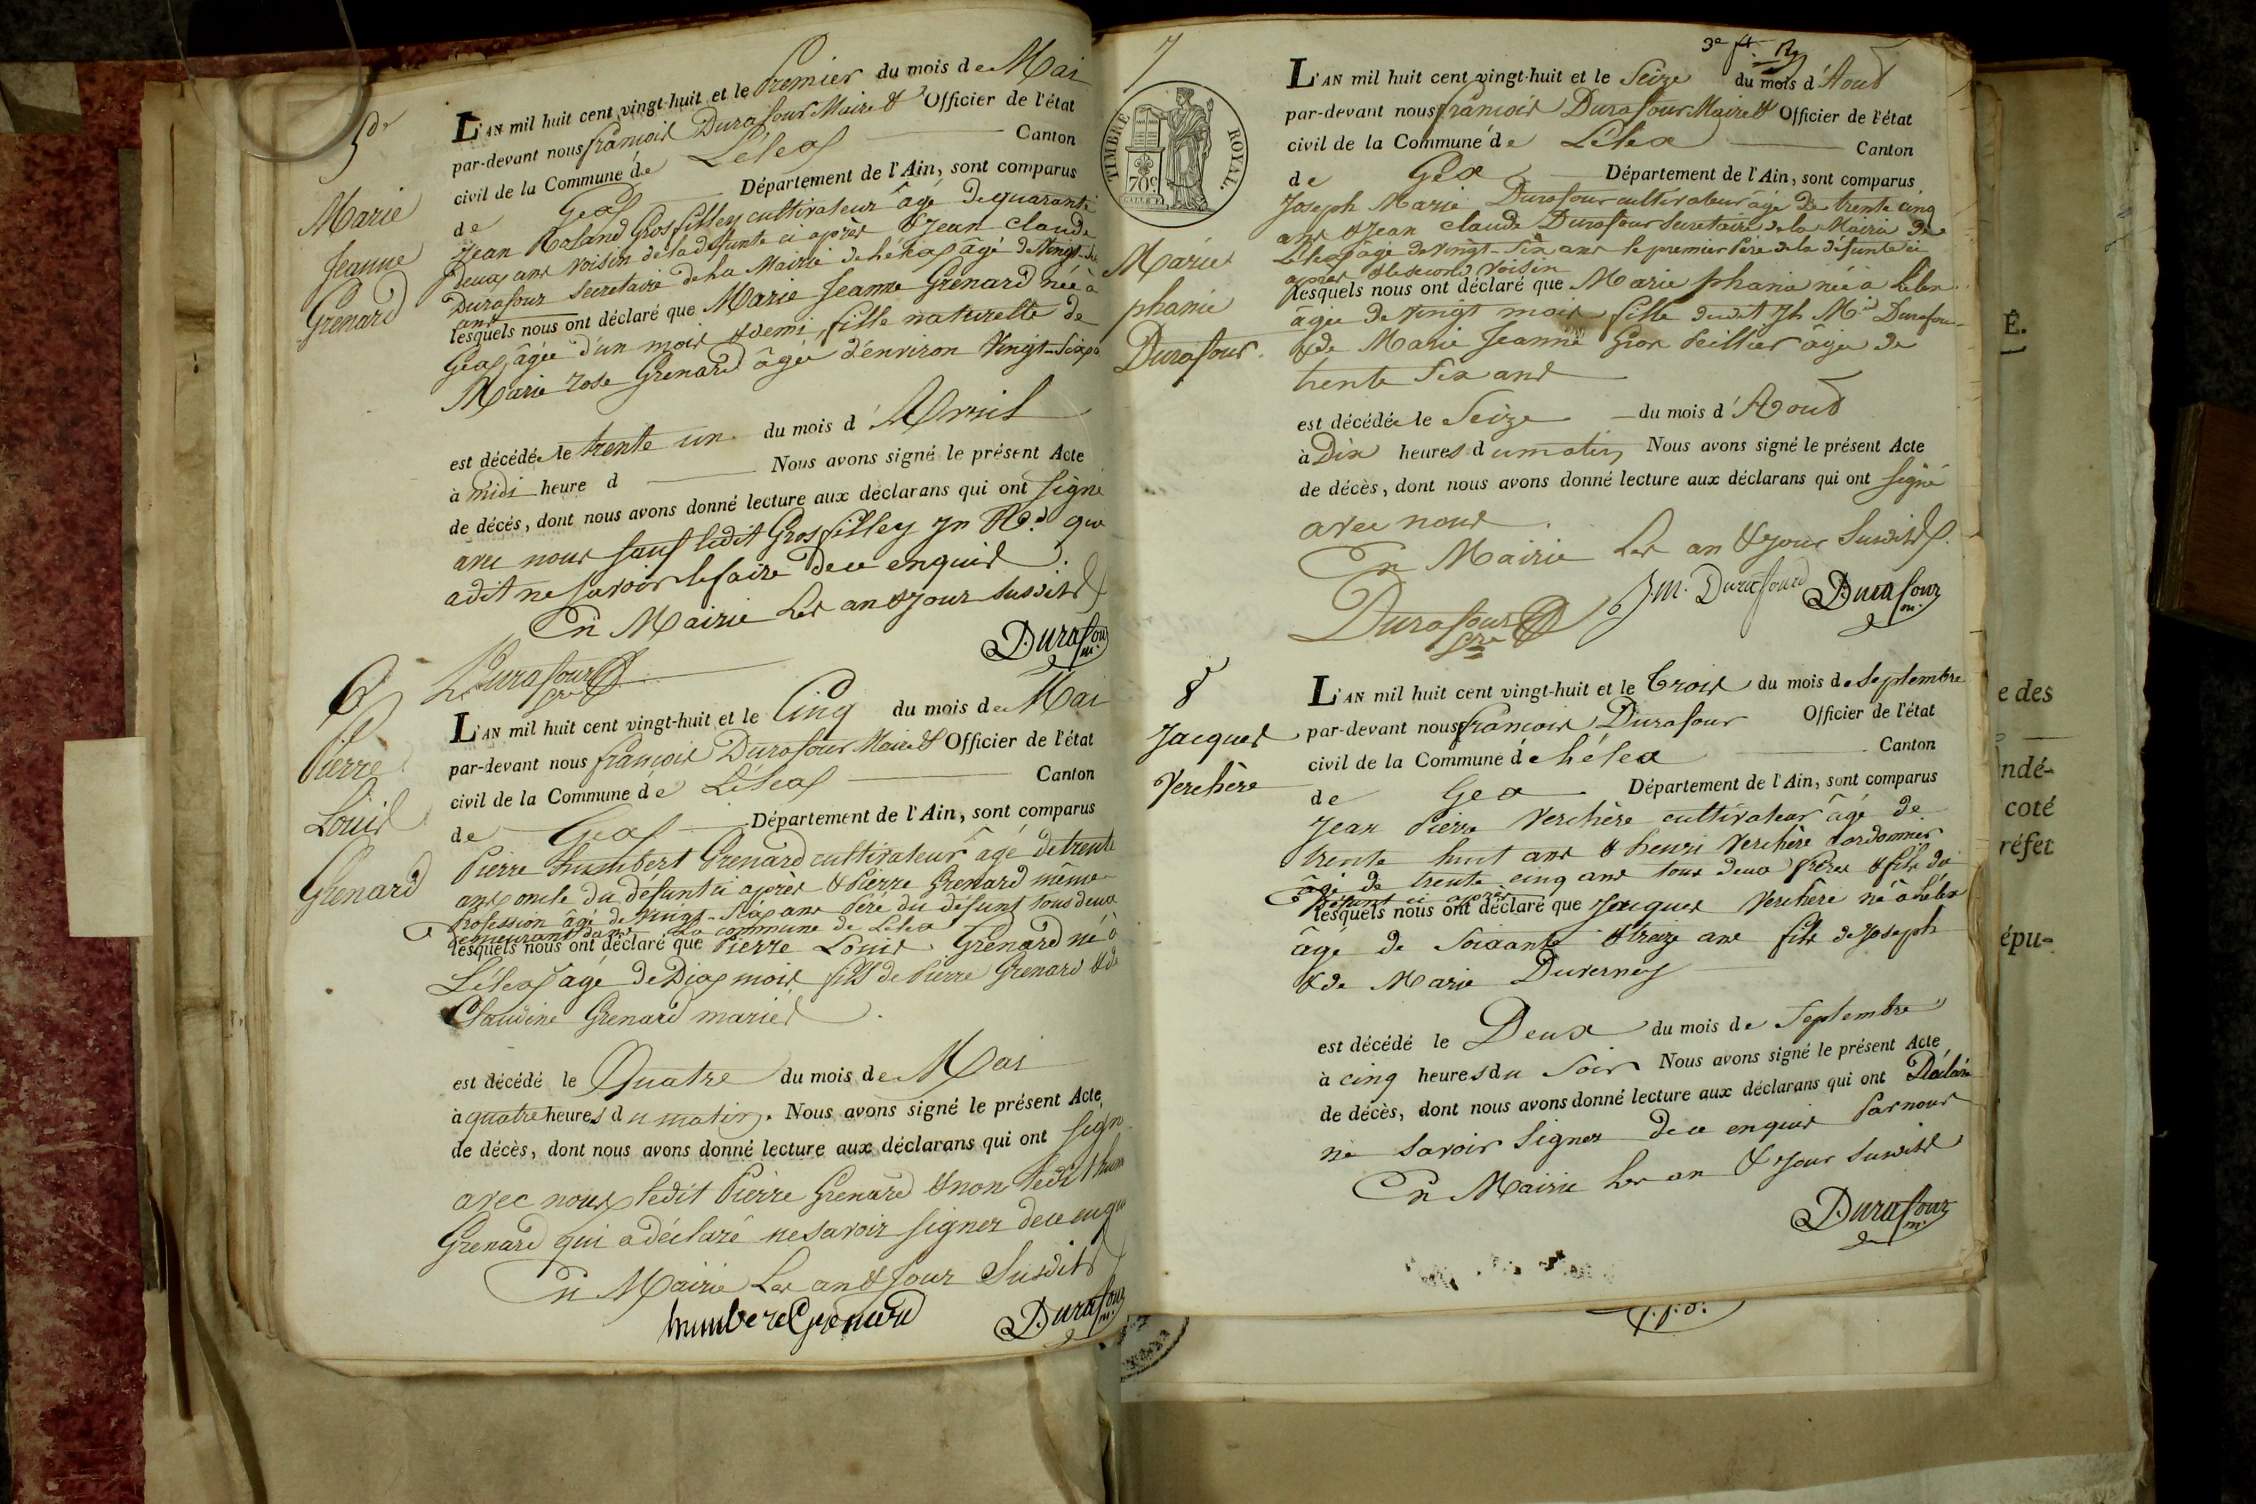 5e
Marie
Jeanne
Grenard
L'AN mil huit cent vingt-huit et le Premier du mois de Mai
par-devant nous françois Durafour Maire & Officier de l'état
civil de la Commune de Léleax Canton
de Geax Département de l'Ain, sont comparus
Jean Roland Grosfilley cultivateur âgé de quarante
deux ans voisin de la defunte ci après & Jean Claude
Durafour secretaire de la Mairie de Léleax âgé de vingt-six
ans
lesquels nous ont déclaré que Marie Jeanne Grenard née à
Geax âgée d'un mois & demi, fille naturelle de
Marie Rose Grenard âgée d'environ Vingt-Six
est décédée le trente un du mois d'Avril
à midi heure d Nous avons signé le présent Acte
de décés, dont nous avons donné lecture aux déclarans qui ont signé
avec nous sauf ledit Grosfilley Jn Rd. que
a dit ne savoir le faire de ce enquis
En Mairie Les an & jour susdits
Durafour m.
Durafour sre
6
Pierre
Louis
Grenard
L'AN mil huit cent vingt-huit et le Cinq du mois de Mai
par-devant nous françois Durafour Maire & Officier de l'état
civil de la Commune de Léleax Canton
de Geax Département de l'Ain, sont comparus
Pierre humbert Grenard cultivateur âgé de trente
ans oncle du défunt ci après & Pierre Grenard même
Profession âgé de vingt-six ans Père du défunt tous deux
demeurant dans la commune de Lélex
lesquels nous ont déclaré que Pierre Louis Grenard né à
Léleax âgé de Diax mois fils de Pierre Grenard & de
Claudine Grenard mariés
est décédé le Quatre du mois de Mai
à quatre heures du matin. Nous avons signé le présent Acte
de décès, dont nous avons donné lecture aux déclarans qui ont signé
avec nous ledit Pierre Grenard & non ledit hum
Grenard qui a déclaré ne savoir signer de ce enqu
En Mairie Les an & Jour Susdits
humbere Grenard
Durafour m.
3e ft
7
TIMBRE ROYAL.
70c
Marie
phanie
Durafour.
L'AN mil huit cent vingt-huit et le Seize du mois d'Aout
par-devant nous françois Durafour Maire & Officier de l'état
civil de la Commune de Lélex Canton
de Gex Département de l'Ain, sont comparus
Joseph Marie Durafour cultivateur âgé de trente cinq
ans & Jean Claude Durafour Secretaire de la Mairie de
Léleax âgé de vingt-six ans le premier Père de la défunte ci
après & le second Voisin
lesquels nous ont déclaré que Marie phanie née à Lélex
âgée de vingt mois fille dudit Jh Mie Durafour
& de Marie Jeanne Gros Peillier âgée de
trente six ans
est décédée le Seize du mois d'Aout
à Dix heures du matin Nous avons signé le présent Acte
de décès, dont nous avons donné lecture aux déclarans qui ont signé
avec nous
En Mairie Les an & jour Susdits.
Durafour sre
J M. Durafourd
Durafour m.
8
Jacques
Verchère
L'AN mil huit cent vingt-huit et le Trois du mois de Septembre
par-devant nous françois Durafour Officier de l'état
civil de la Commune de Lélex Canton
de Gex Département de l'Ain, sont comparus
Jean Pierre Verchère cultivateur âgé de
trente huit ans & henri Verchère Cordonnier
âgé de trente cinq ans tous deux frères & fils du
Défunt ci après
lesquels nous ont déclaré que Jacques Verchère né à Lélex
âgé de soixante & treize ans fils de Joseph
& de Marie Duverney
est décédé le Deux du mois de Septembre
à cinq heures du Soir Nous avons signé le présent Acte
de décès, dont nous avons donné lecture aux déclarans qui ont Déclaré
ne savoir signer de ce enquis par nous
En Mairie Les an & Jour Susdits
Durafour m.
É.
e des
ndé-
coté
réfet
épu-